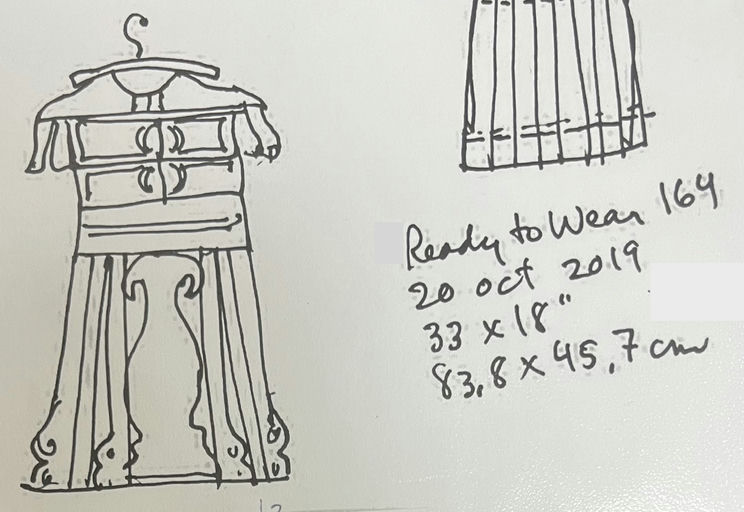 Ready to Wear 164
20 oct 2019
33 x 18"
83,8 x 45,7 cm